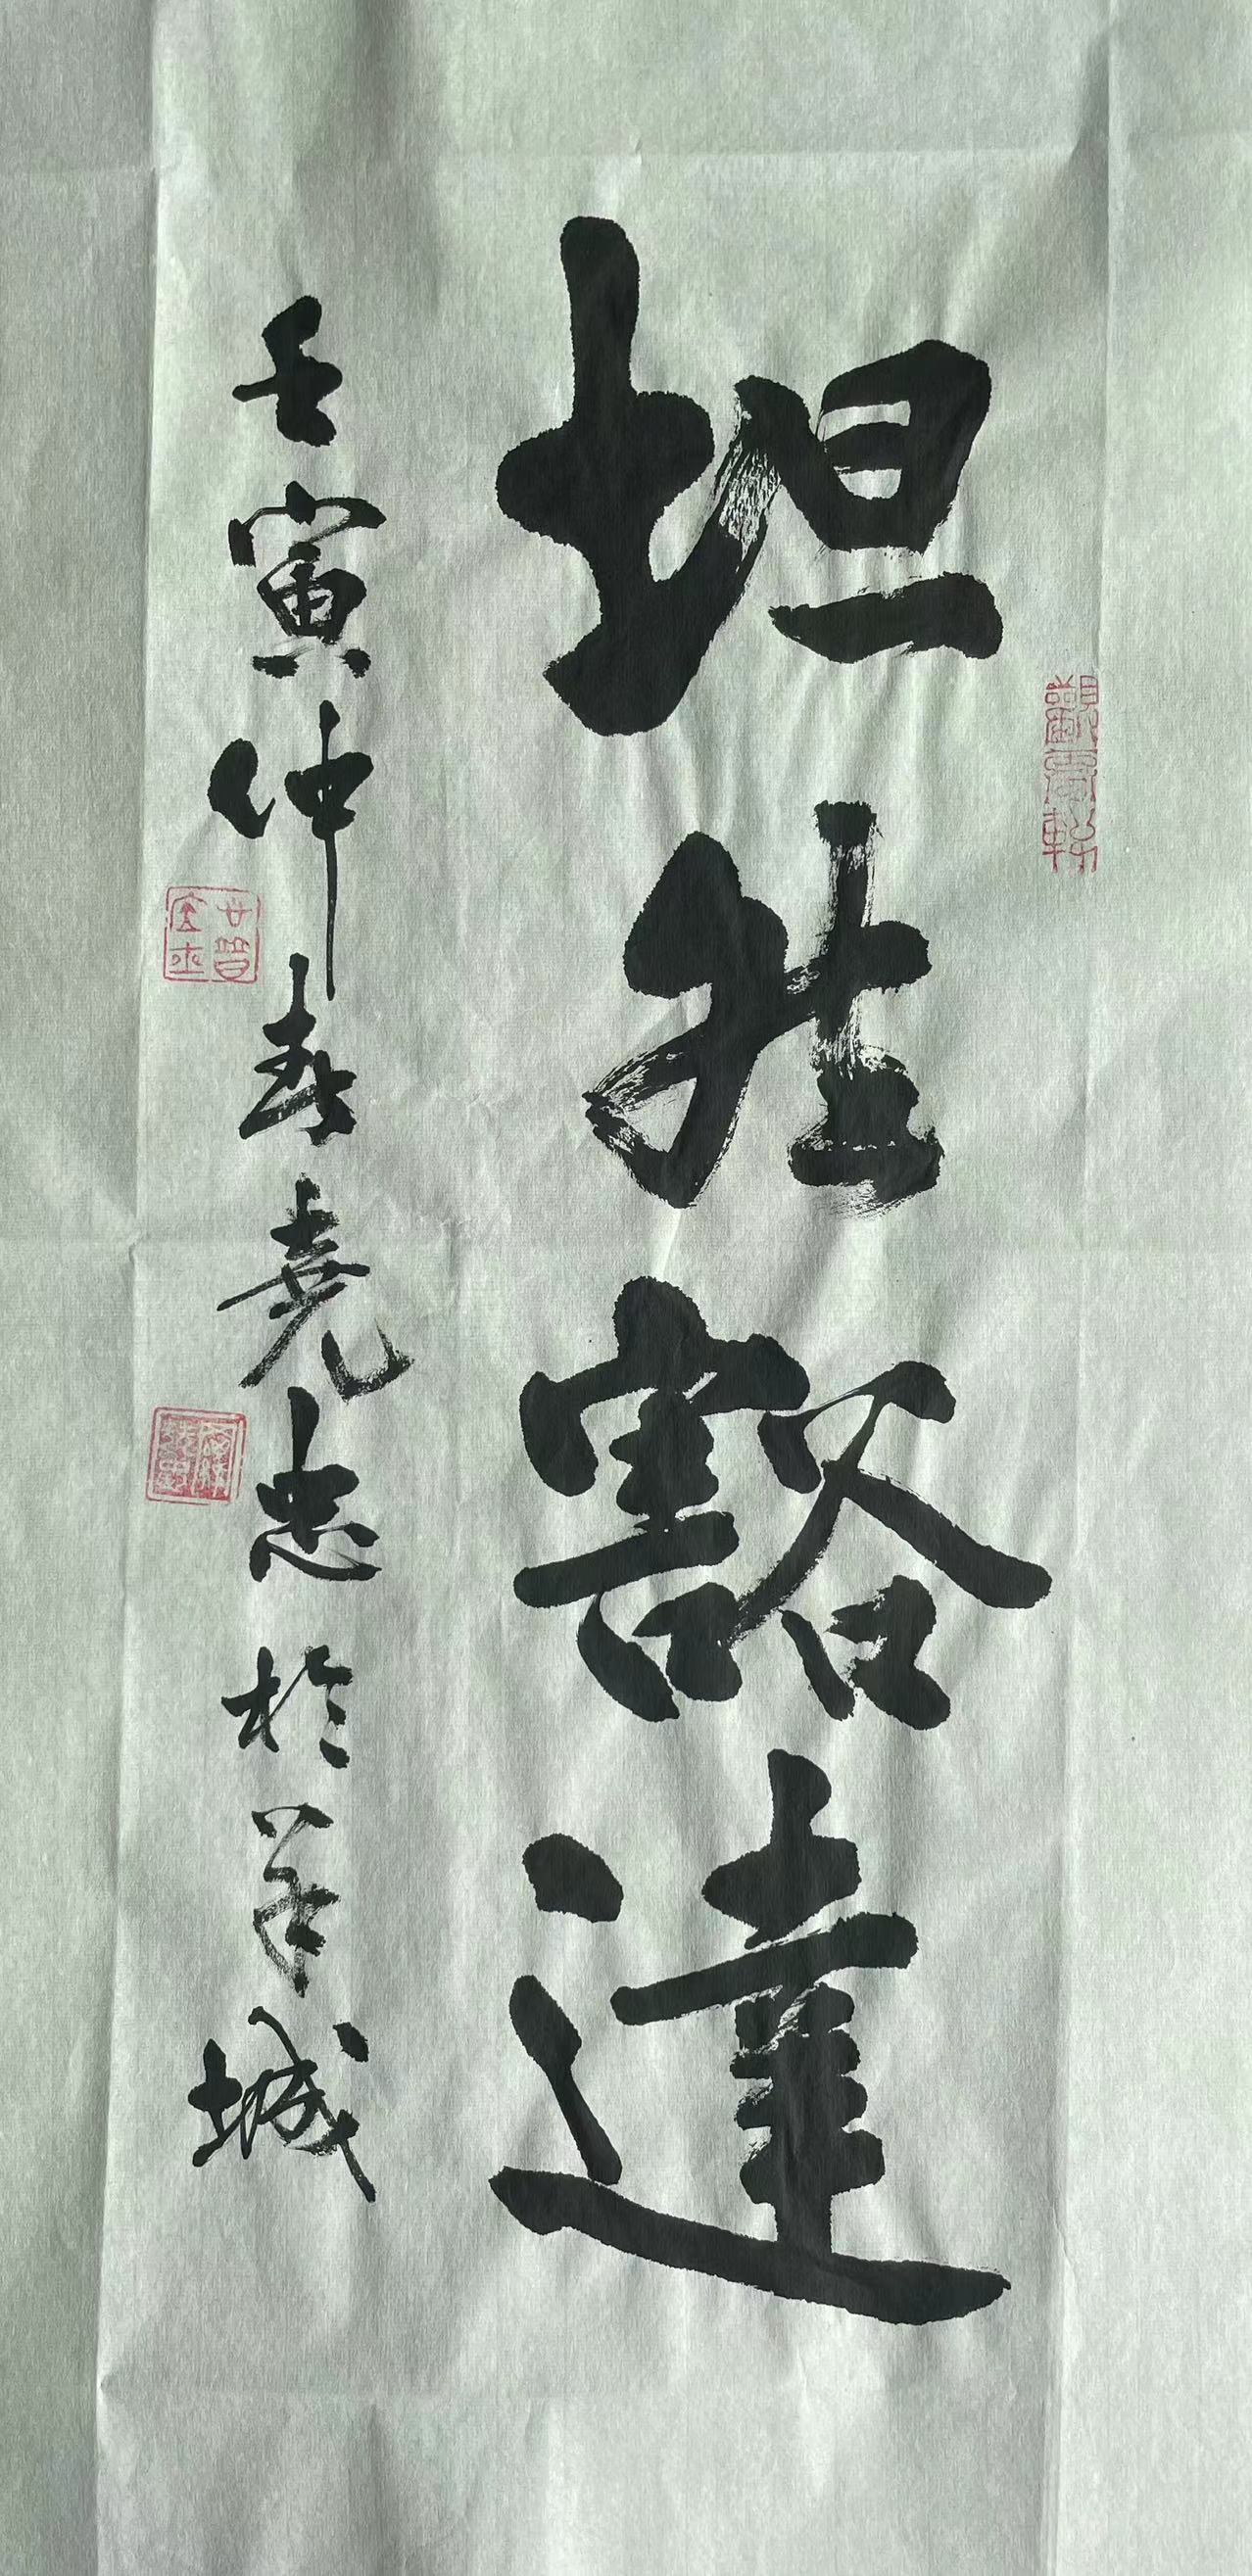 坦性豁達
壬寅仲春堯忠於羊城